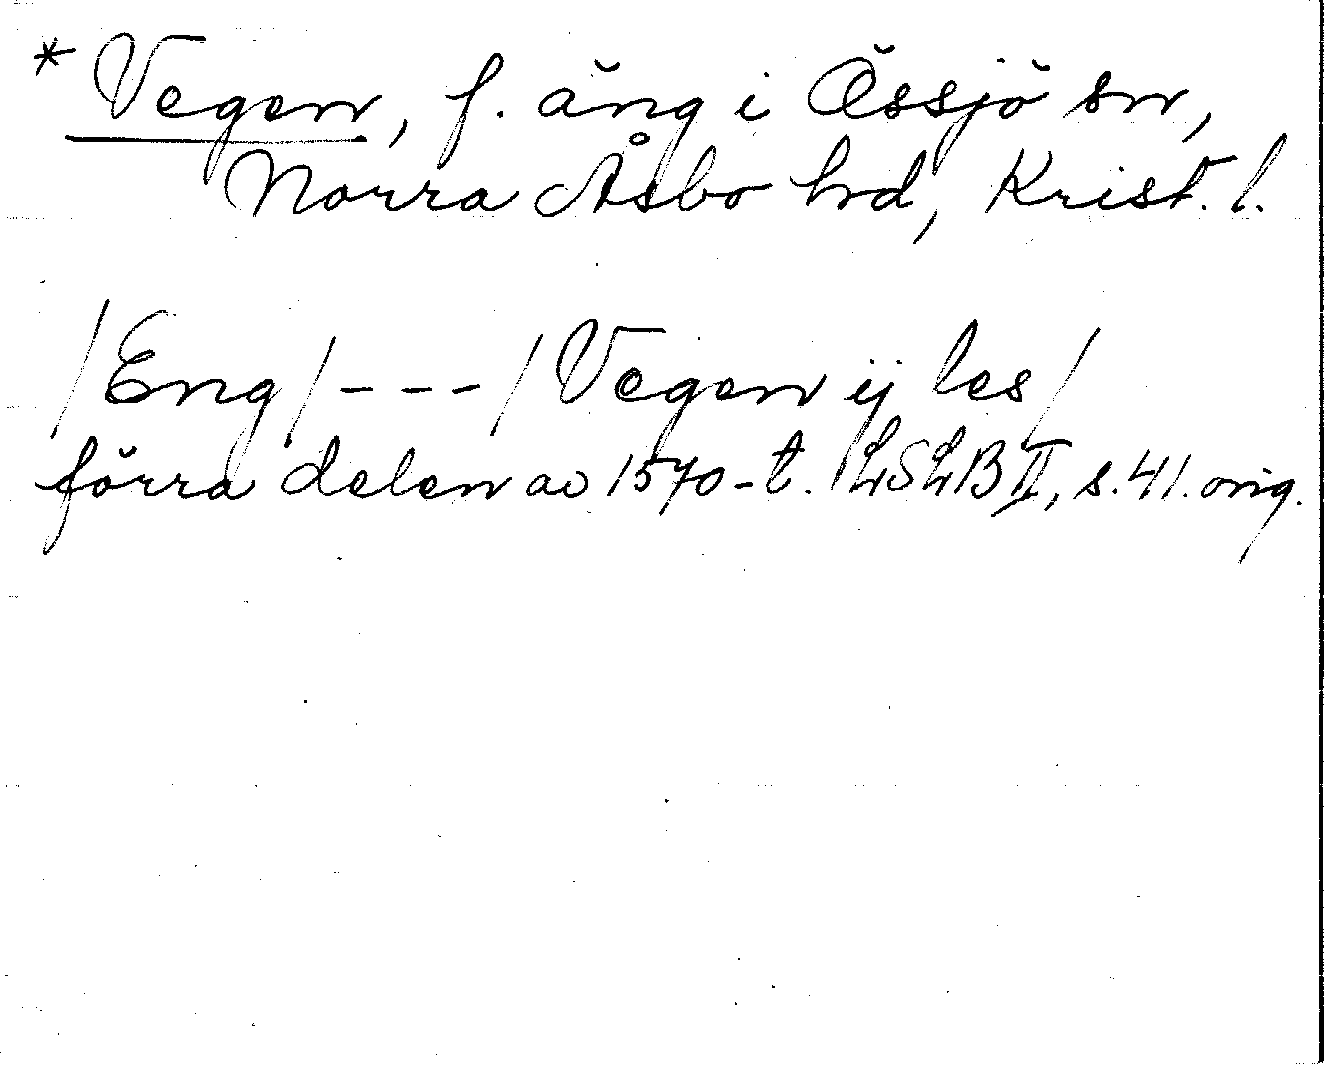 * Vegen, f. äng i Össjö sn,
Norra Åsbo hrd, Krist. l.
/Eng/ - - - /Vegen ij les/
förra delen av 1570-t. LSLB II, s. 41. orig.